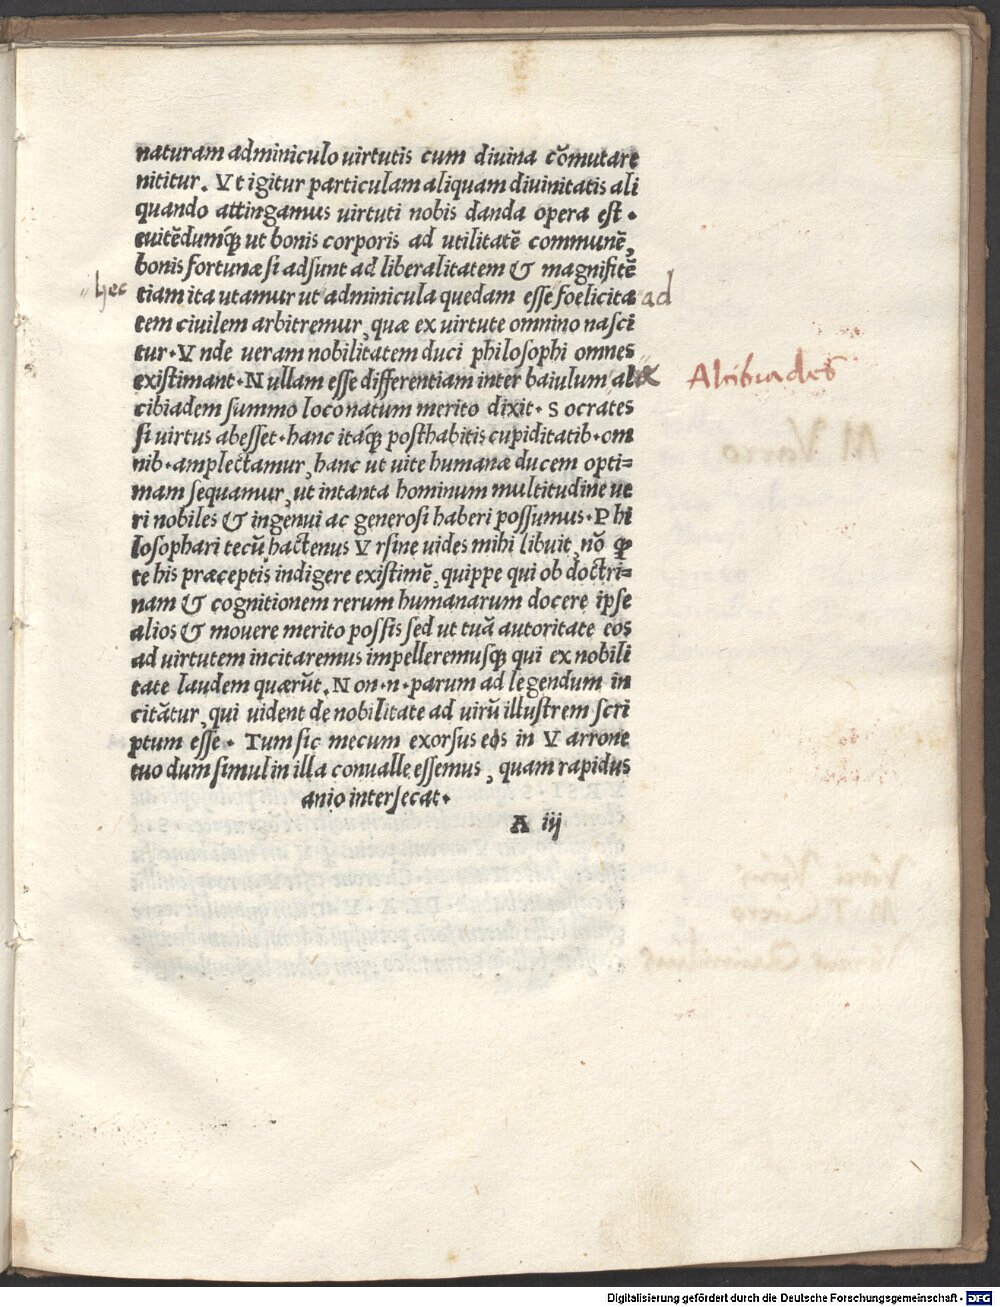 naturam adminiculo uirtutis cum diuina cōmutare
nititur. Vt igitur particulam aliquam diuinitatis ali
quando attingamus uirtuti nobis danda opera est.
euitēdumq́ꝫ ut bonis corporis ad utilitatē communē,
bonis fortunæ si adsunt ad liberalitatem & magnifitē
hec tiam ita utamur ut adminicula quedam esse foelicita ad
tem ciuilem arbitremur, quæ ex uirtute omnino nasci
tur. Vnde ueram nobilitatem duci philosophi omnes
existimant. Nullam esse differentiam inter baiulum al Alcibiades
cibiadem summo loco natum merito dixit. Socrates
si uirtus abesset. hanc itaq́ꝫ posthabitis cupiditatib. om
nib. amplectamur, hanc ut uite humanæ ducem opti=
mam sequamur, ut in tanta hominum multitudine ue
ri nobiles & ingenui ac generosi haberi possumus. Phi
losophari tecū hactenus Vrsine uides mihi libuit, nō ꝙ
te his præceptis indigere existimē, quippe qui ob doctri=
nam & cognitionem rerum humanarum docere ipse
alios & mouere merito possis sed ut tuā autoritate eos
ad uirtutem incitaremus impelleremusqꝫ qui ex nobili
tate laudem quærūt. Non .n. parum ad legendum in
citātur, qui uident de nobilitate ad uirū illustrem scri
ptum esse. Tum sic mecum exorsus eos in Varrone
tuo dum simul in illa conualle essemus, quam rapidus
anio intersecat.
A iij
Digitalisierung gefördert durch die Deutsche Forschungsgemeinschaft - DFG